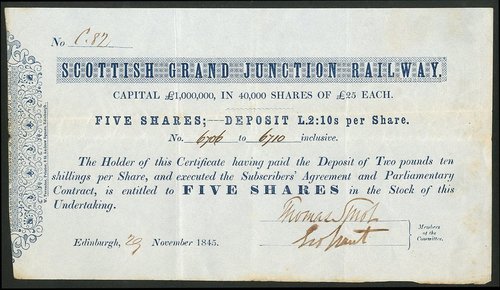 No C.82
SCOTTISH GRAND JUNCTION RAILWAY.
CAPITAL £1,000,000, IN 40,000 SHARES OF £25 EACH.
FIVE SHARES;—DEPOSIT L.2:10s per Share.
No. 6706 to 6710 inclusive.
The Holder of this Certificate having paid the Deposit of Two pounds ten
shillings per Share, and executed the Subscribers' Agreement and Parliamentary
Contract, is entitled to FIVE SHARES in the Stock of this
Undertaking.
Thomas
Edinburgh, 29 November 1845.
Members
of the
Committee.